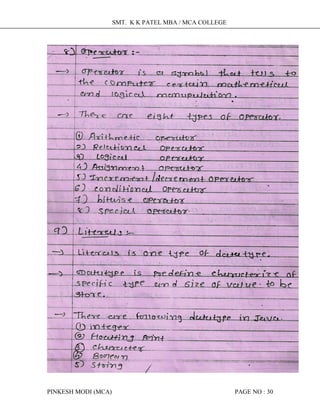 SMT. K K PATEL MBA / MCA COLLEGE
8) Operator :-
→ Operator is a symbol that tells to
the computer certain mathemetical
and logical manupulation.
→ There are eight types of operator.
① Arithmetic operator
2) Relational operator
3) Logical operator
4) Assignment operator
5) Increment /decrement operator
6) conditional operator
7) bitwise operator
8) special operator
9) Literals :-
→ Literals is one type of datatype.
→ Datatype is predefine characterize of
specific type and size of value to be
store.
→ There are following datatype in Java.
① integer
② floatting point
③ character
④ Boolean
5) String
PINKESH MODI (MCA) PAGE NO : 30